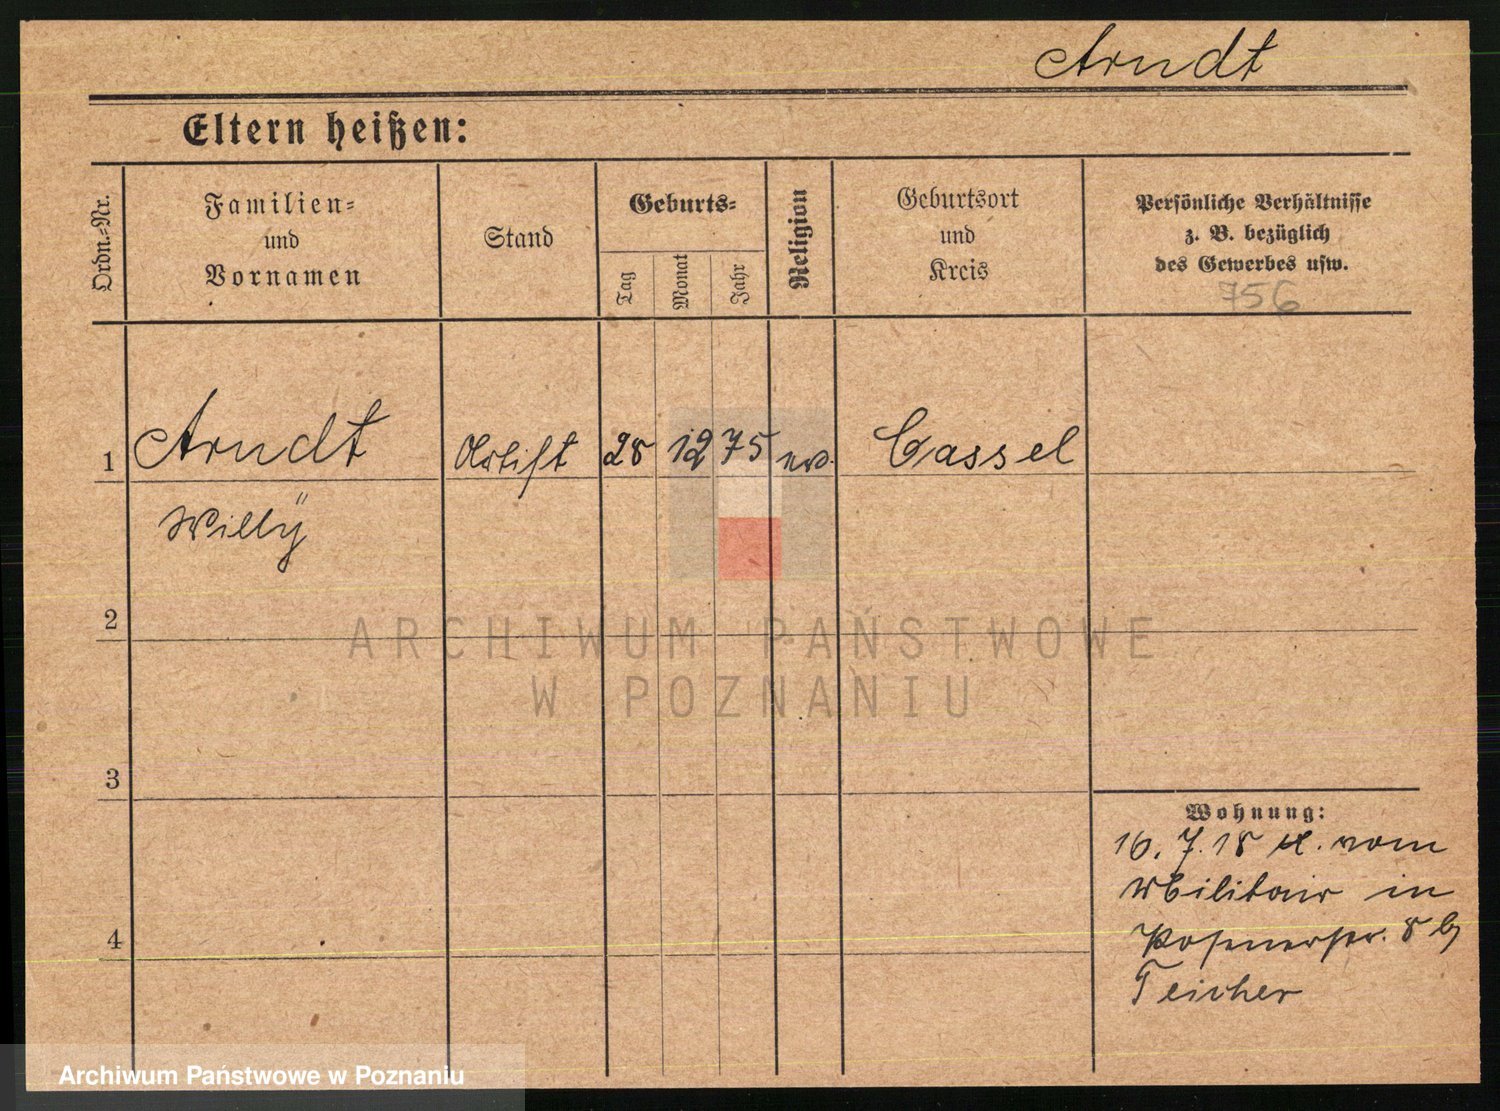 Arndt
Eltern heißen:
Ordn.-Nr.
Familien-
und
Vornamen
Stand
Geburts-
Tag
Monat
Jahr
Religion
Geburtsort
und
Kreis
Persönliche Verhältnisse
z. B. bezüglich
des Gewerbes usw.
756
1 Arndt Artist 28 12 75 ev. Cassel
Willÿ
2
ARCHIWUM PAŃSTWOWE
W POZNANIU
3
Wohnung:
16. 7. 18 vom
Militair in
Posenerstr. 8 b
4
Teicher
Archiwum Państwowe w Poznaniu